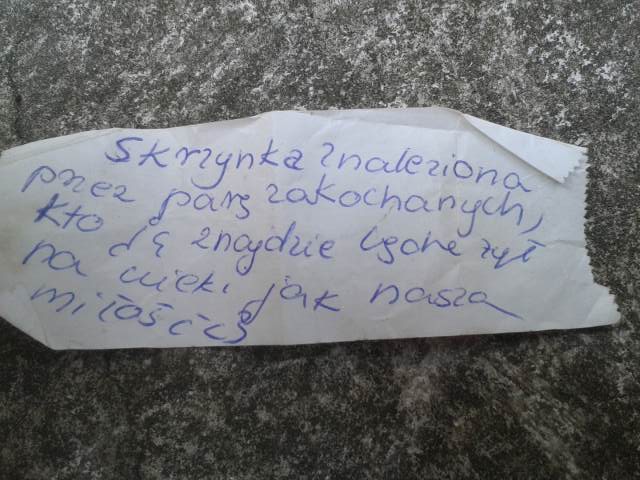 Skrzynka znaleziona
przez parę zakochanych,
Kto ją znajdzie będzie żył
na wieki jak nasza
miłość